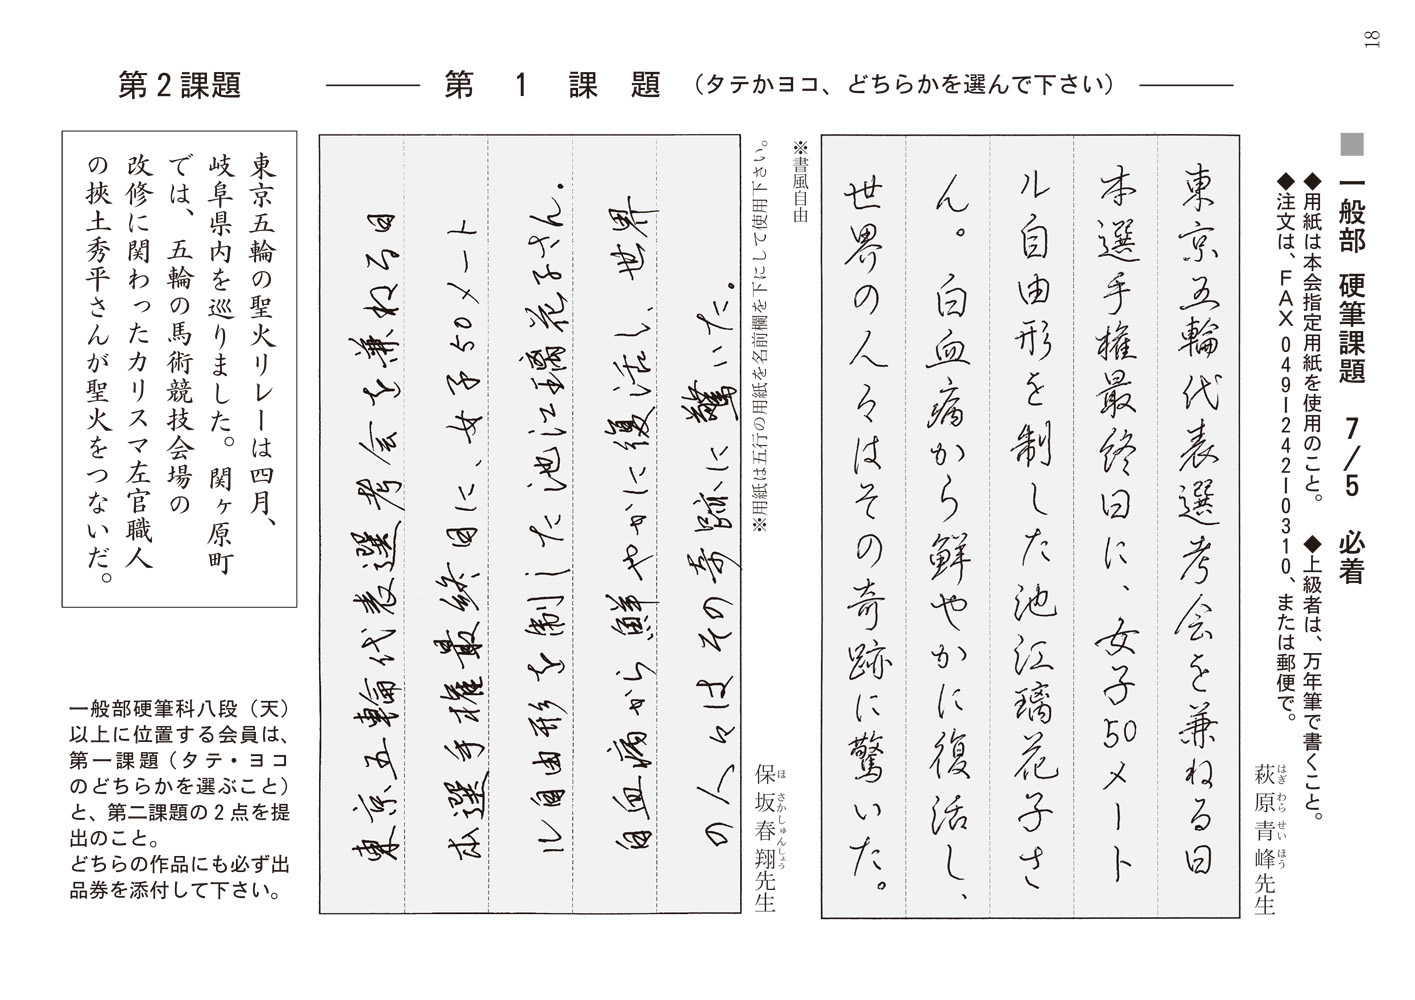 18
■一般部 硬筆課題 7/5 必着
◆用紙は本会指定用紙を使用のこと。 ◆上級者は、万年筆で書くこと。
◆注文は、FAX 049-242-0310、または郵便で。
第1課題 （タテかヨコ、どちらかを選んで下さい）
萩原青峰先生
はぎ わら せい ほう
東京五輪代表選考会を兼ねる日
本選手権最終日に、女子50メート
ル自由形を制した池江璃花子さ
ん。白血病から鮮やかに復活し、
世界の人々はその奇跡に驚いた。
※書風自由
※用紙は五行の用紙を名前欄を下にして使用下さい。
保坂春翔先生
ほ さか しゅん しょう
東京五輪代表選考会を兼ねる日
本選手権最終日に、女子50メート
ル自由形を制した池江璃花子さん。
白血病から鮮やかに復活し、世界
の人々はその奇跡に驚いた。
第2課題
東京五輪の聖火リレーは四月、
岐阜県内を巡りました。関ヶ原町
では、五輪の馬術競技会場の
改修に関わったカリスマ左官職人
の挾土秀平さんが聖火をつないだ。
一般部硬筆科八段（天）
以上に位置する会員は、
第一課題（タテ・ヨコ
のどちらかを選ぶこと）
と、第二課題の2点を提
出のこと。
どちらの作品にも必ず出
品券を添付して下さい。